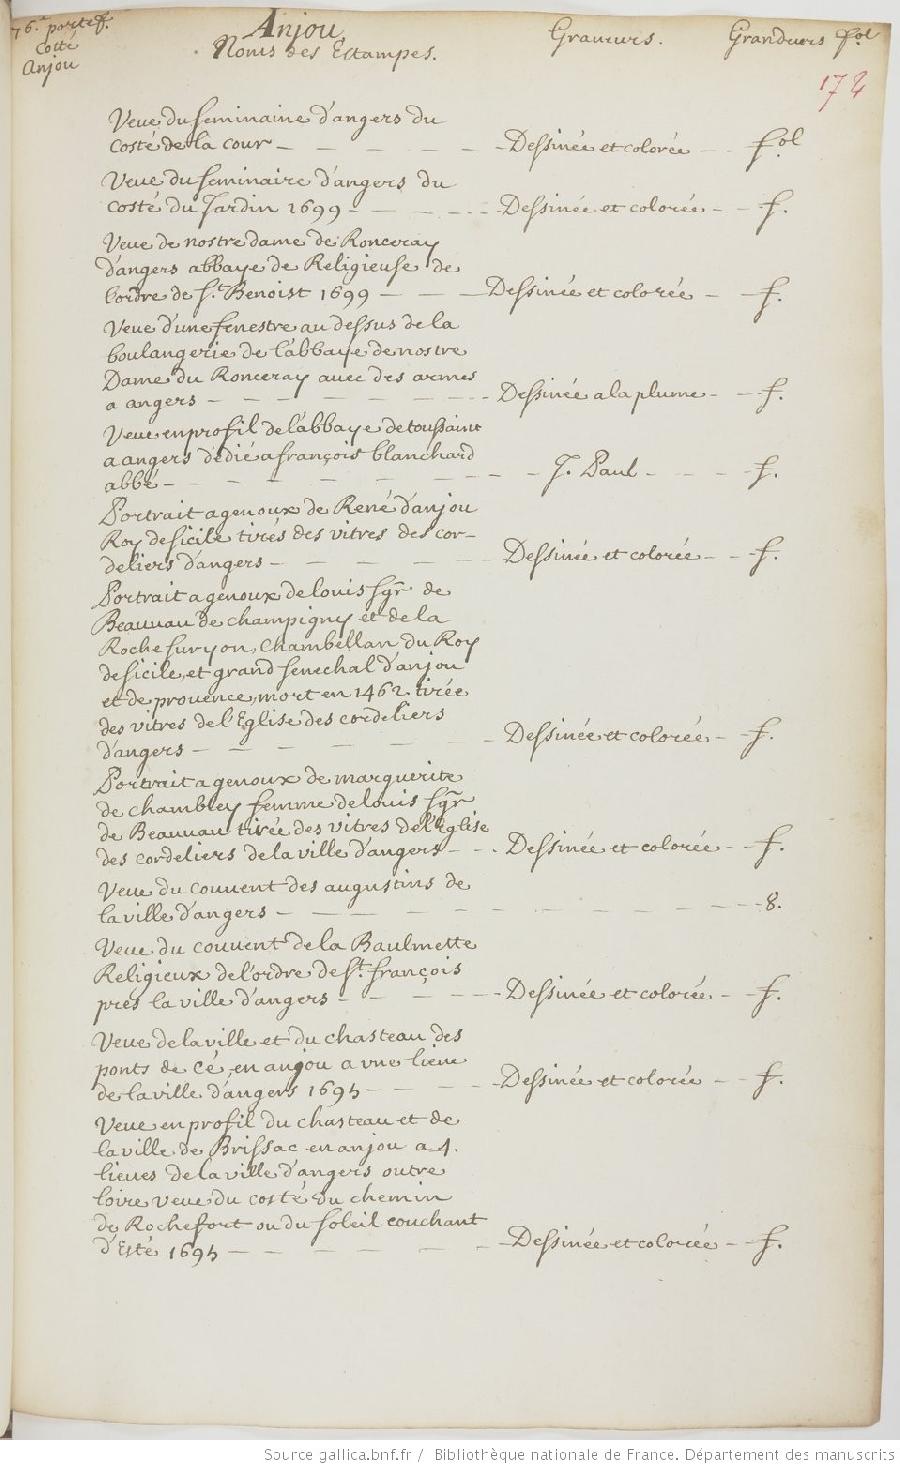 76.e portef. Anjou
Cotté Noms des Estampes. Graveurs. Grandeurs fol
Anjou
172
Veue du seminaine d'angers du
costé de la cour - - - - - - Dessinée et colorée - - fol
Veue du seminaire d'angers du
costé du Jardin 1699 - - - - - Dessinée et colorée - - f.
Veue de nostre dame de Ronceray
d'angers abbaye de Religieuse de
l'ordre de St. Benoist 1699 - - - Dessinée et colorée - f.
Veue d'une fenestre au dessus de la
boulangerie de l'abbaye de nostre
Dame du Ronceray avec des armes
a angers - - - - - - - - Dessinée a la plume - - f.
Veue en profil de l'abbaye de toussaint
a angers dedié a françois blanchard
abbé - - - - - - - - - - J. Paul - - - - f.
Portrait a genoux de René d'anjou
Roy de sicile tirés des vitres des cor-
deliers d'angers - - - - - - Dessinée et colorée - - f.
Portrait a genoux de louis sgr de
Beauvau de champigny et de la
Roche sur yon, chambellan du Roy
de sicile, et grand senechal d'anjou
et de provence, mort en 1462 tirée
des vitres de l'Eglise des cordeliers
d'angers - - - - - - - - Dessinée et colorée - - f.
Portrait a genoux de marguerite
de chambley femme de louis sgr
de Beauvau tirée des vitres de l'Eglise
des cordeliers de la ville d'angers - - . Dessinée et colorée - - f.
Veue du couvent des augustins de
la ville d'angers - - - - - - - - - - - 8.
Veue du couvent de la Baulmette
Religieux de l'ordre de St. françois
pres la ville d'angers - - - - - Dessinée et colorée - - f.
Veue de la ville et du chasteau des
ponts de cé, en anjou a vne lieue
de la ville d'angers 1695 - - - - Dessinée et colorée - - f.
Veue en profil du chasteau et de
la ville de Brissac en anjou a 4.
lieues de la ville d'angers outre
loire veue du costé du chemin
de Rochefort ou du soleil couchant
d'Esté 1695 - - - - - - - Dessinée et colorée - - f.
Source gallica.bnf.fr / Bibliothèque nationale de France. Département des manuscrits